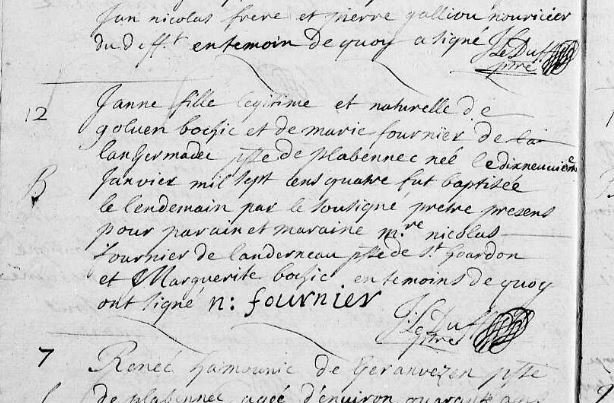 Jan nicolas frere et pierre galliou nouricier
du deff.t en temoin de quoy a signé J: Le Duff ptre
12 Janne fille legitime et naturelle de
goluen bochic et de marie fournier de
langermadec psse de plabennec neé le dixneuvie.e
B Janvier mil sept cens quatre fut baptisée
le lendemain par le soussigne pretre presens
pour parain et maraine m.re nicolas
fournier de landerneau psse de St houardon
et Marguerite bochic en temoins de quoy
ont signé n: fournier J: Le Duff ptre
7 Reneé hamounic de psse
de plabennec ageé d'environ quarante ans